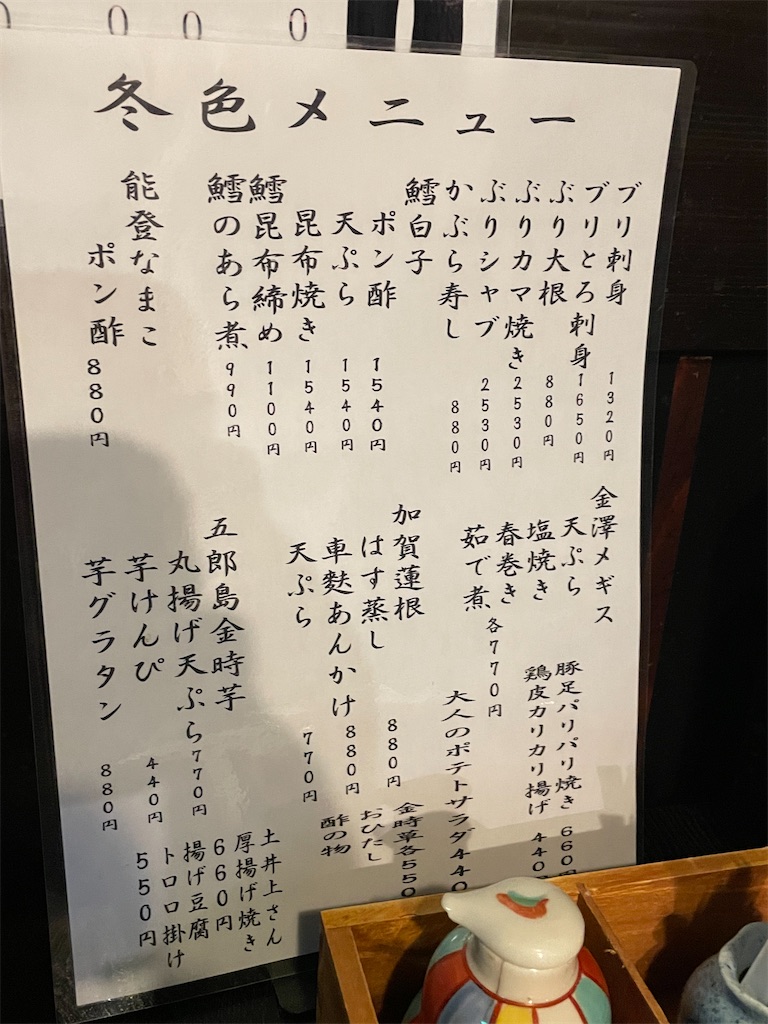 0 0 0
冬色メニュー
ブリ刺身 1320円
ブリとろ刺身 1650円
ぶり大根 880円
ぶりカマ焼き 2530円
ぶりシャブ 2530円
かぶら寿し 880円
鱈白子
ポン酢 1540円
天ぷら 1540円
昆布焼き 1540円
鱈昆布締め 1100円
鱈のあら煮 990円
能登なまこ
ポン酢 880円
金澤メギス
天ぷら
塩焼き
春巻き
茹で煮 各770円
豚足パリパリ焼き 660円
鶏皮カリカリ揚げ 440円
大人のポテトサラダ 440
加賀蓮根
はす蒸し 880円
車麩あんかけ 880円
天ぷら 770円
金時草各550
おひたし
酢の物
五郎島金時芋
丸揚げ天ぷら 770円
芋けんぴ 440円
芋グラタン 880円
土井上さん
厚揚げ焼き
660円
揚げ豆腐
トロロ掛け
550円